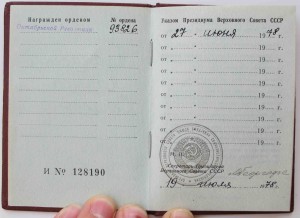 Награжден орденом
№ ордена
Октябрьской Революции
93826
И № 128190
Указом Президиума Верховного Совета СССР
от 27 июня 1978г.
от " " 19 г.
от " " 19 г.
от " " 19 г.
от " " 19 г.
от " " 19 г.
от " " 19 г.
от " " 19 г.
Секретарь Президиума
Верховного Совета СССР
19 июля 1978.